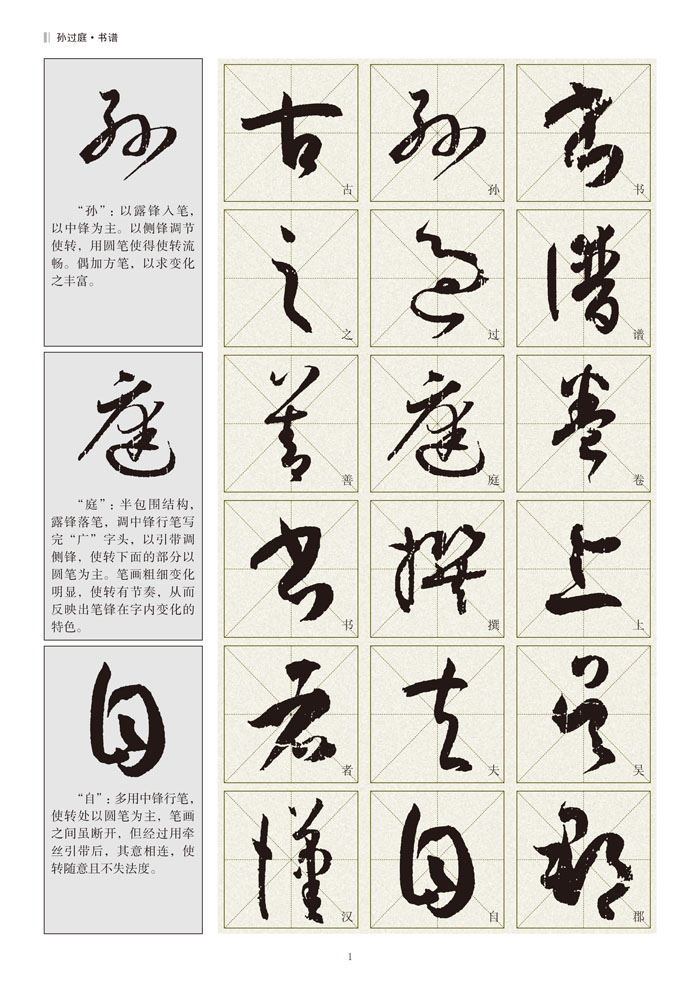 孙过庭·书谱
孙
“孙”：以露锋入笔，
以中锋为主。以侧锋调节
使转，用圆笔使得使转流
畅。偶加方笔，以求变化
之丰富。
庭
“庭”：半包围结构，
露锋落笔，调中锋行笔写
完“广”字头，以引带调
侧锋，使转下面的部分以
圆笔为主。笔画粗细变化
明显，使转有节奏，从而
反映出笔锋在字内变化的
特色。
自
“自”：多用中锋行笔，
使转处以圆笔为主，笔画
之间虽断开，但经过用牵
丝引带后，其意相连，使
转随意且不失法度。
書 书
譜 谱
卷 卷
上 上
吳 吴
郡 郡
孫 孙
過 过
庭 庭
撰 撰
夫 夫
自 自
古 古
之 之
善 善
書 书
者 者
漢 汉
1